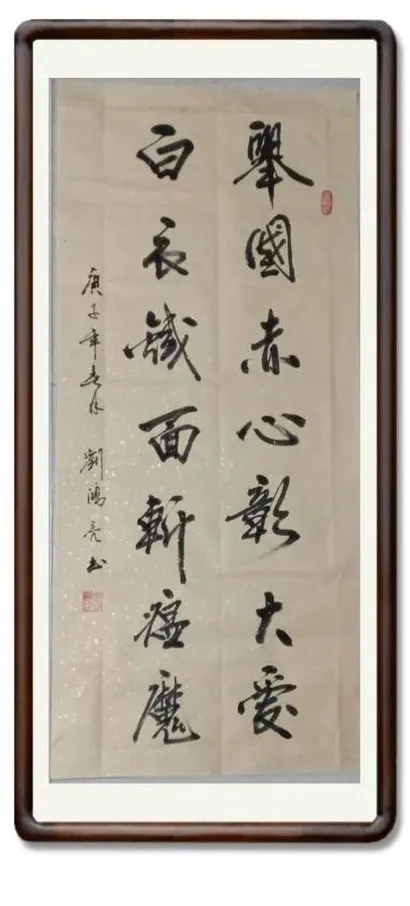 舉國赤心彰大愛
白衣鐵面斬瘟魔
庚子年春月 劉鴻亮書